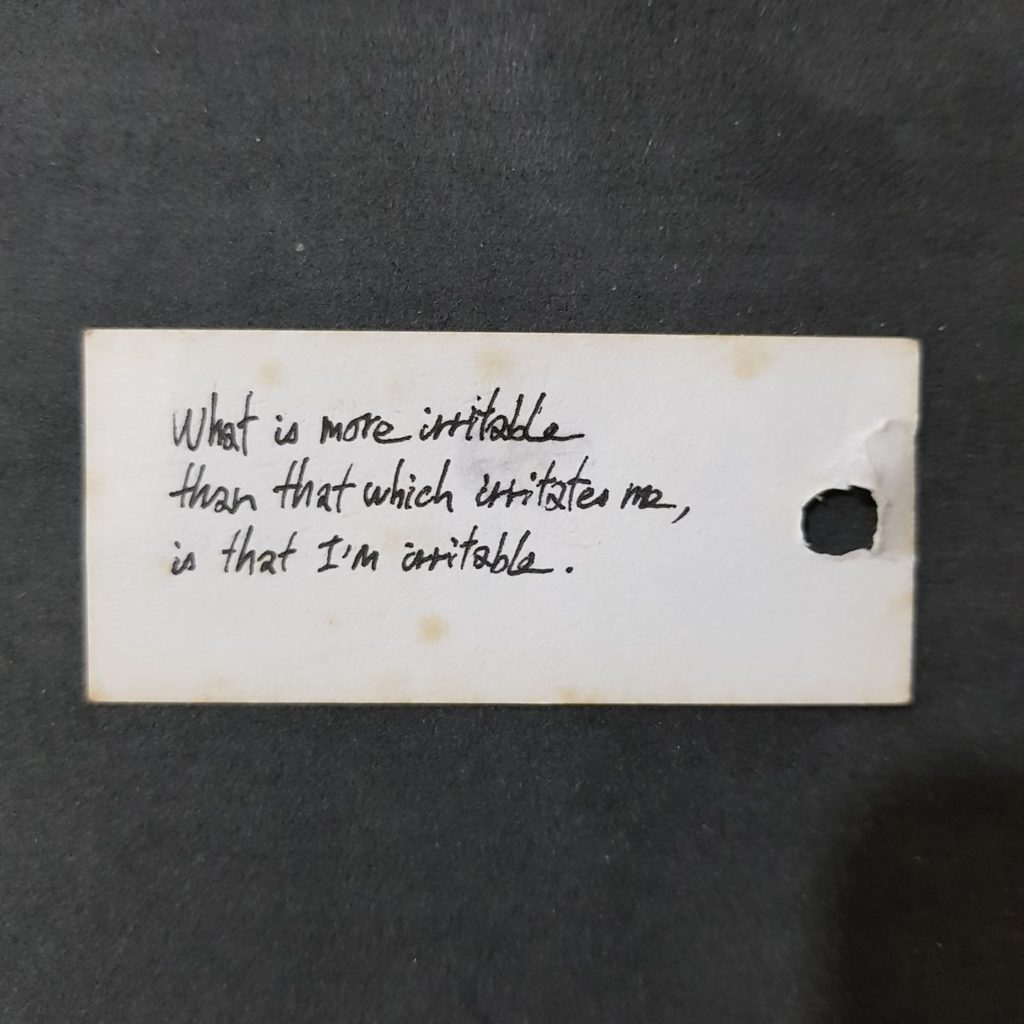 What is more irritable
than that which irritates me,
is that I'm irritable.